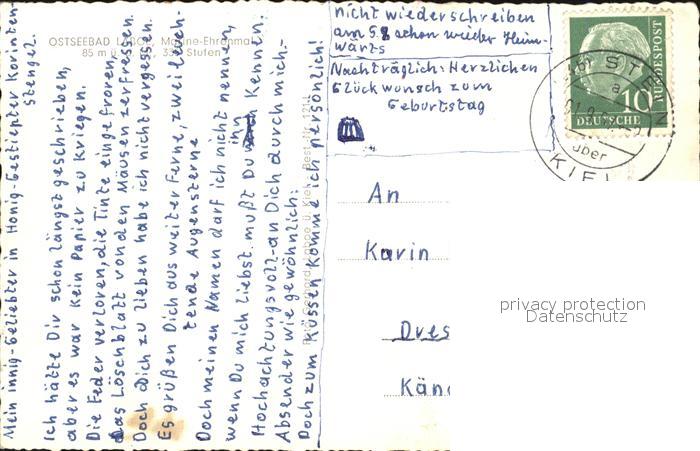 Mein innig-Geliebter in Honig-Gestiepter Korinten
stengel.
Ich hätte Dir schon längst geschrieben,
aber es war Kein Papier zu Kriegen.
Die Feder verloren, die Tinte eingefroren,
das Löschblatt von den Mäusen zerfressen.
Doch Dich zu lieben habe ich nicht vergessen.
Es grüßen Dich aus weiter Ferne, zwei leuch-
tende Augensterne
Doch meinen Namen darf ich nicht nennen,
wenn Du mich liebst mußt Du ihn Kennen.
Hochachtungsvoll-an Dich durch mich-
Absender wie gewöhnlich:
Doch zum Küssen Komme ich persönlich!
OSTSEEBAD LABOE, Marine-Ehrenmal
85 m ü. Stufen
nicht wiederschreiben
am 5.8 schon wieder Heim-
wärts
Nachträglich: Herzlichen
Glückwunsch zum
Geburtstag
10
BUNDESPOST
DEUTSCHE
a
über
KIEL
An
Karin
Dres
Kän
privacy protection
Datenschutz